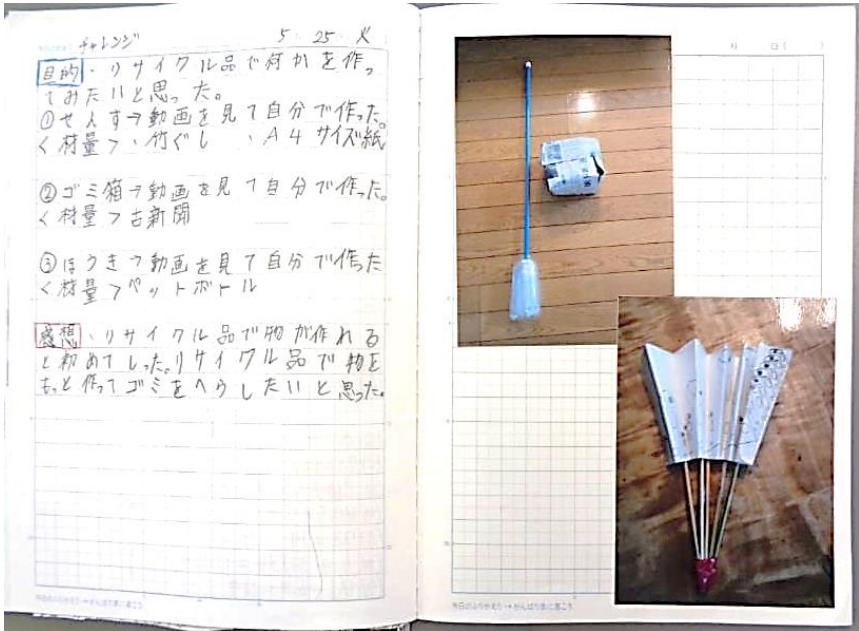 チャレンジ 5 25 火
目的・リサイクル品で何かを作っ
てみたいと思った。
①せんす→動画を見て自分で作った。
<材量>・竹ぐし ・A4サイズ紙
②ゴミ箱→動画を見て自分で作った。
<材量>古新聞
③ほうき→動画を見て自分で作った
<材量>ペットボトル
感想・リサイクル品で物が作れる
と初めてしった。リサイクル品で物を
もっと作ってゴミをへらしたいと思った。
月 日( )